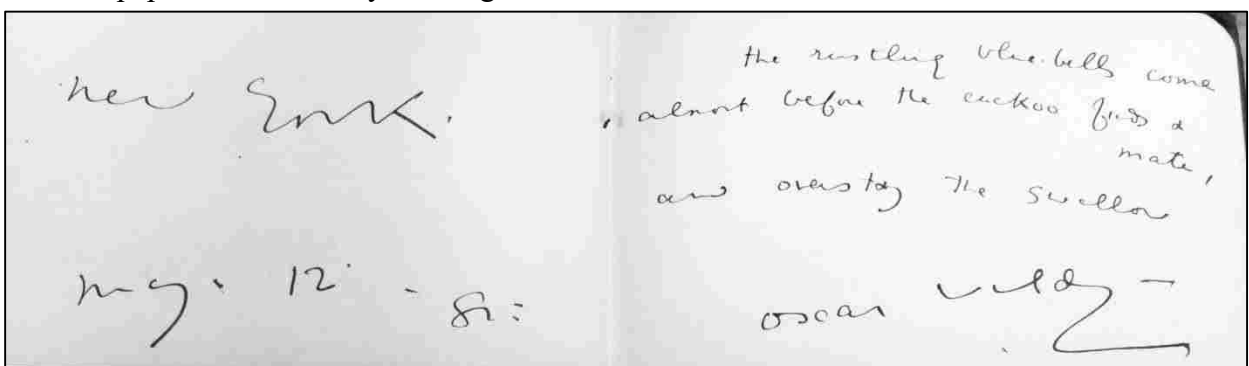 new York.
may. 12 - 82:
the rustling blue-bells come
almost before the cuckoo finds a
mate,
and overstay the swallow
oscar wilde –